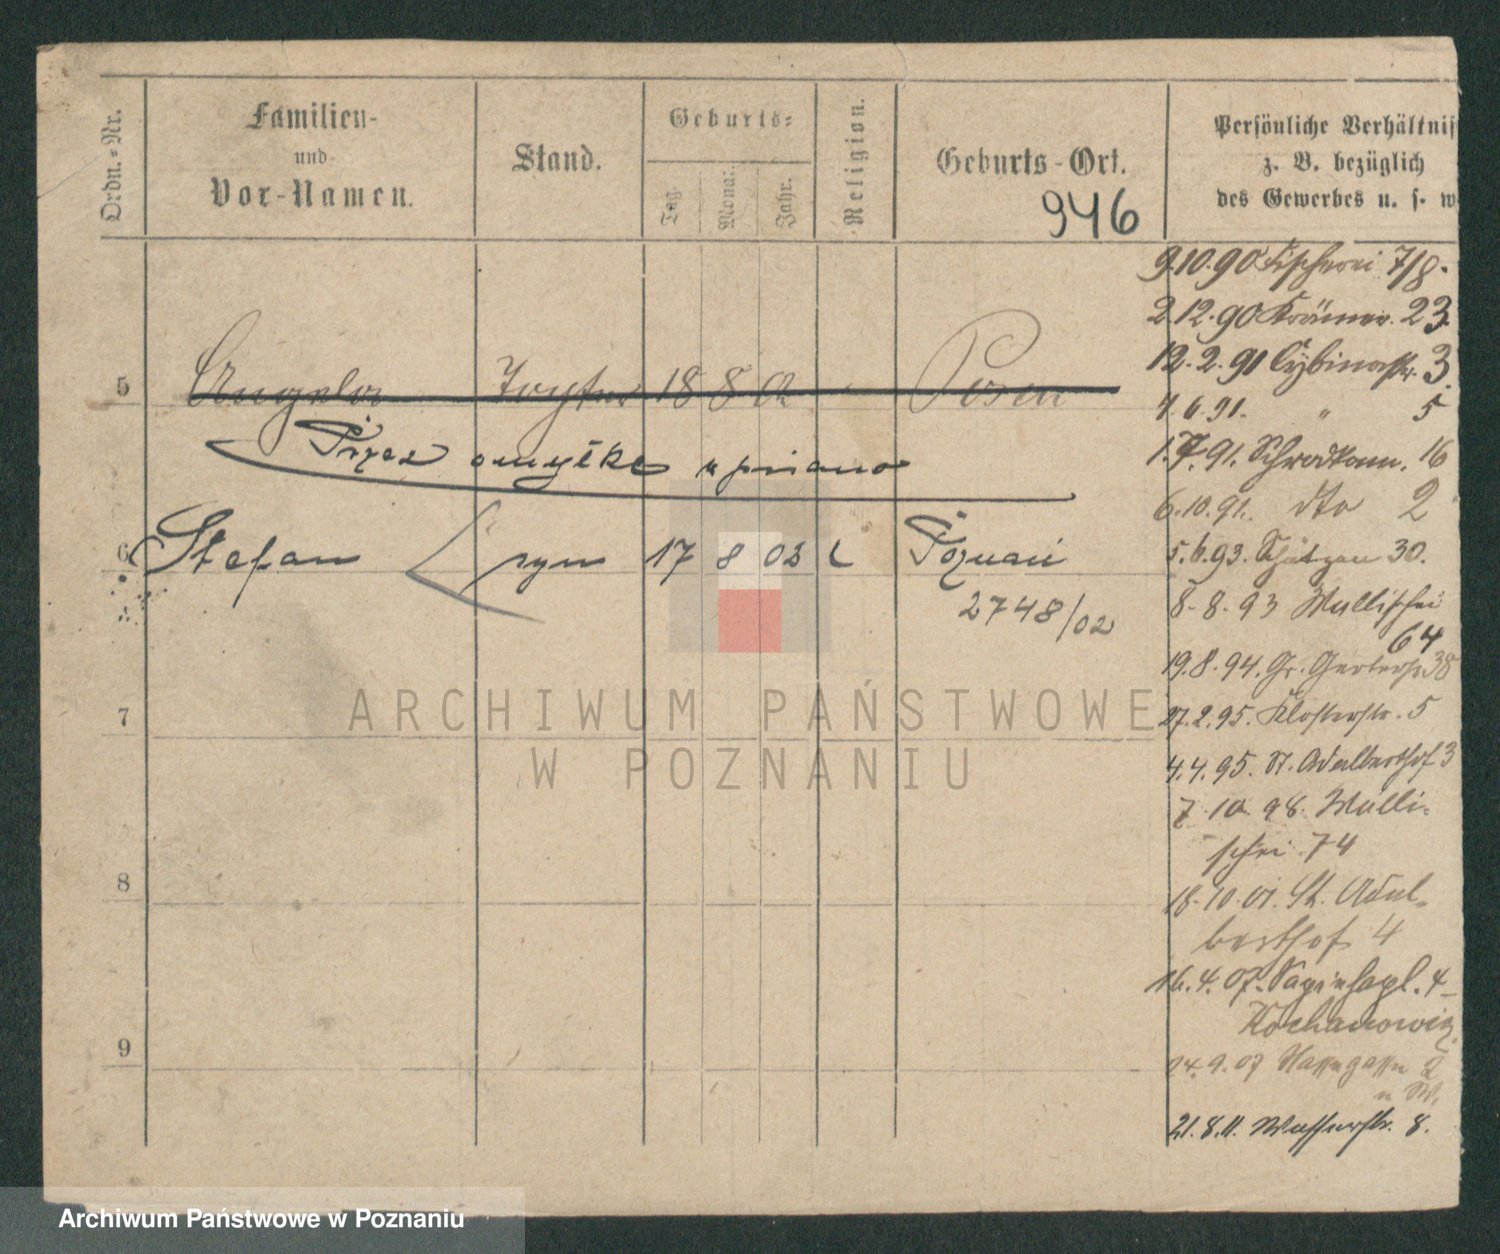 Ordn.-Nr.
Familien-
und
Vor-Namen.
Stand.
Geburts-
Tag.
Monat.
Jahr.
Religion.
Geburts-Ort.
946
Persönliche Verhältnis
z. B. bezüglich
des Gewerbes u. s. w
5 Angela Tochter 18 8 Posen
Przez omyłkę wpisano
6 Stefan syn 17 8 02 k Poznań
2748/02
7
8
9
9.10.90 Fischerei 7/8.
2.12.90 Krämer. 23.
12.2.91 Cybinastr. 3.
7.6.91. " 5
1.7.91. Schrodkam. 16
6.10.91. dto 2
5.6.93. Schützen 30.
8.8.93 Wallischei
64
19.8.94. Gr. Gerberstr 38
27.2.95. Klosterstr. 5
4.4.95. St. Adalberthof 3
7.10.98. Walli-
schei 74
18.10.01. St. Adal-
berthof 4
16.4.07. Sapiehapl. 4
Kochanowicz
24.9.07 Nassegasse 2
21.8.11. Wasserstr. 8.
ARCHIWUM PAŃSTWOWE
W POZNANIU
Archiwum Państwowe w Poznaniu